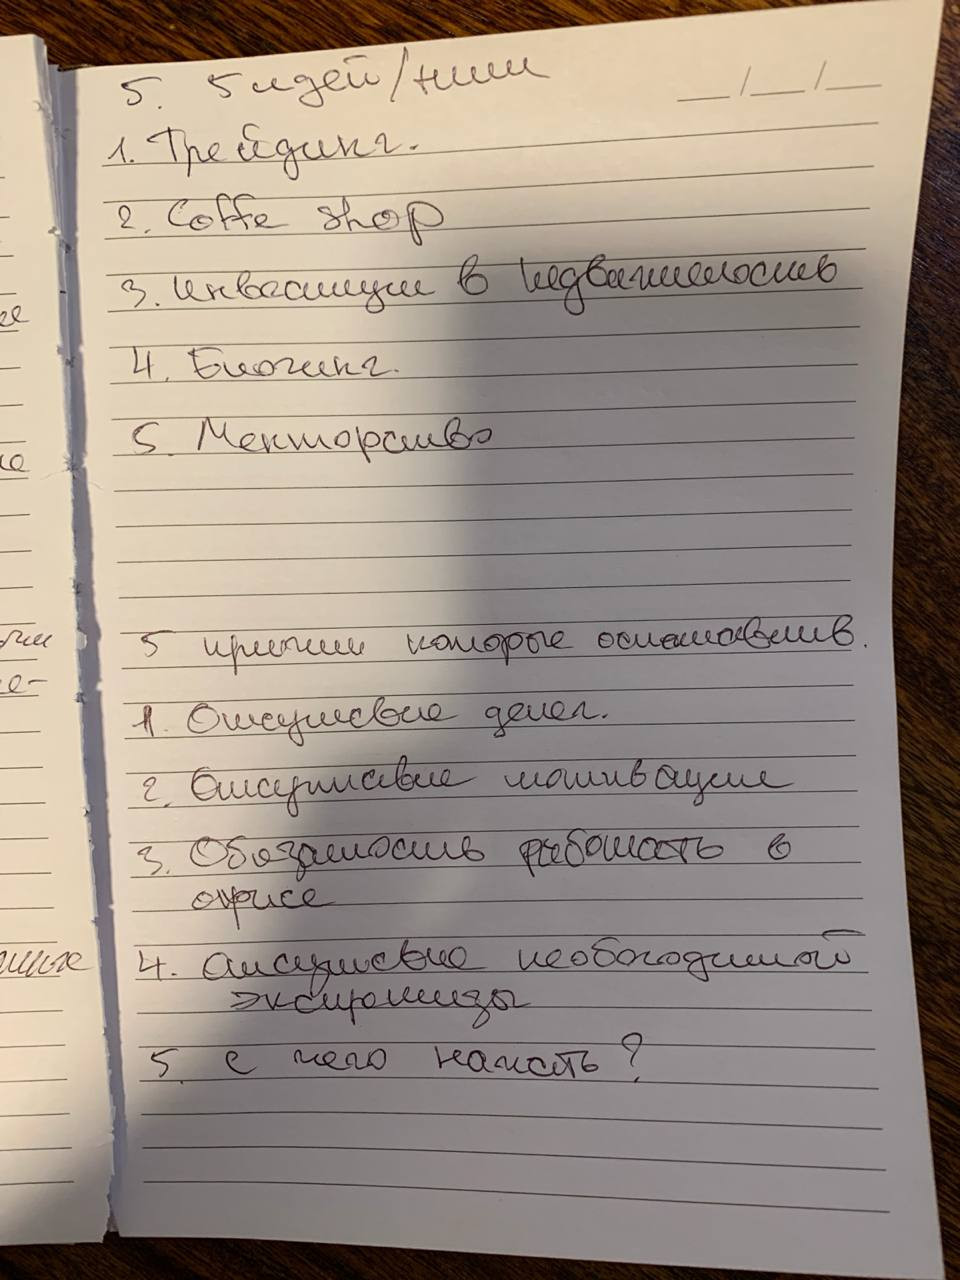 5. 5 идей/ниш
__/__/__
1. Трейдинг.
2. Coffe shop
3. инвестиции в недвижимость
4. Блогинг.
5. Менторство
5 причин которые останавлив.
1. Отсутствие денег.
2. Отсутствие мотивации
3. Обязаность работать в
офисе
4. отсутствие необходимой
экспертизы
5. с чего начать?